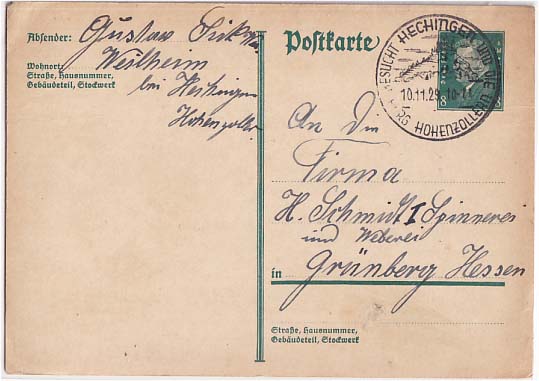 Absender: Gustav Fick
Weilheim
Wohnort,
Straße, Hausnummer,
Gebäudeteil, Stockwerk
bei Hechingen
Hohenzoller
Postkarte
BESUCHT HECHINGEN UND DIE BURG HOHENZOLLERN
10.11.29. 10-11
8
8
An Die
Firma
H. Schmidt I Spinnerei
und Weberei
in Grünberg Hessen
Straße, Hausnummer,
Gebäudeteil, Stockwerk